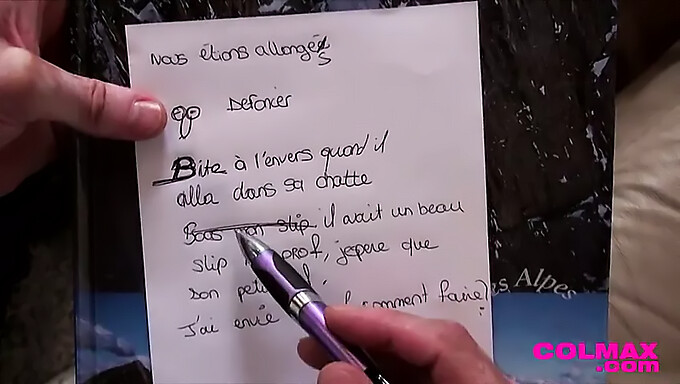 Nous étions allongés
Defoncer
Bite à l'envers quand il
alla dans sa chatte
Bons mon slip il avait un beau
slip prof, j'espere que
son peti
J'ai envie comment faire?
es Alpes
COLMAX
.com